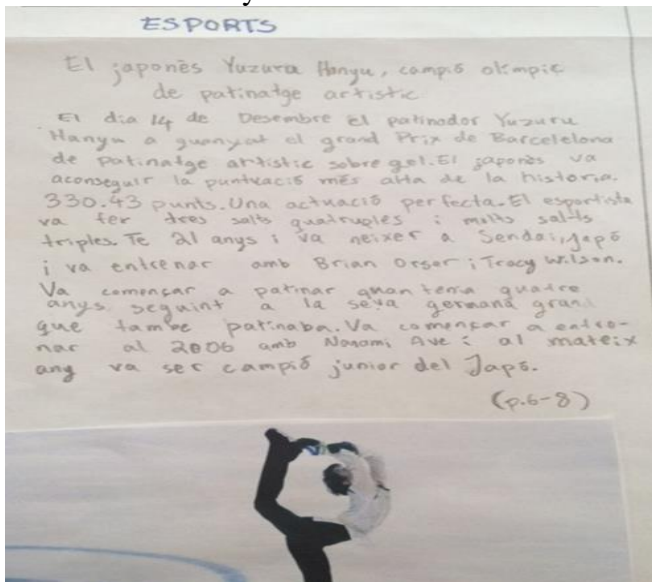 ESPORTS
El japonès Yuzura Hanyu, campió olimpic
de patinatge artistic
El dia 14 de Desembre el patinador Yuzuru
Hanyu a guanyat el grand Prix de Barcelelona
de patinatge artistic sobre gel. El japonès va
aconseguir la puntuació més alta de la historia.
330.43 punts. Una actuació perfecta. El esportista
va fer tres salts quatruples i molts salts
triples. Te 21 anys i va neixer a Sendai, Japó
i va entrenar amb Brian Orser i Tracy Wilson.
Va començar a patinar quan tenia quatre
anys seguint a la seva germana gran
que tambe patinaba. Va començar a entre-
nar al 2006 amb Nanami Ave i al mateix
any va ser campió junior del Japó.
(p.6-8)